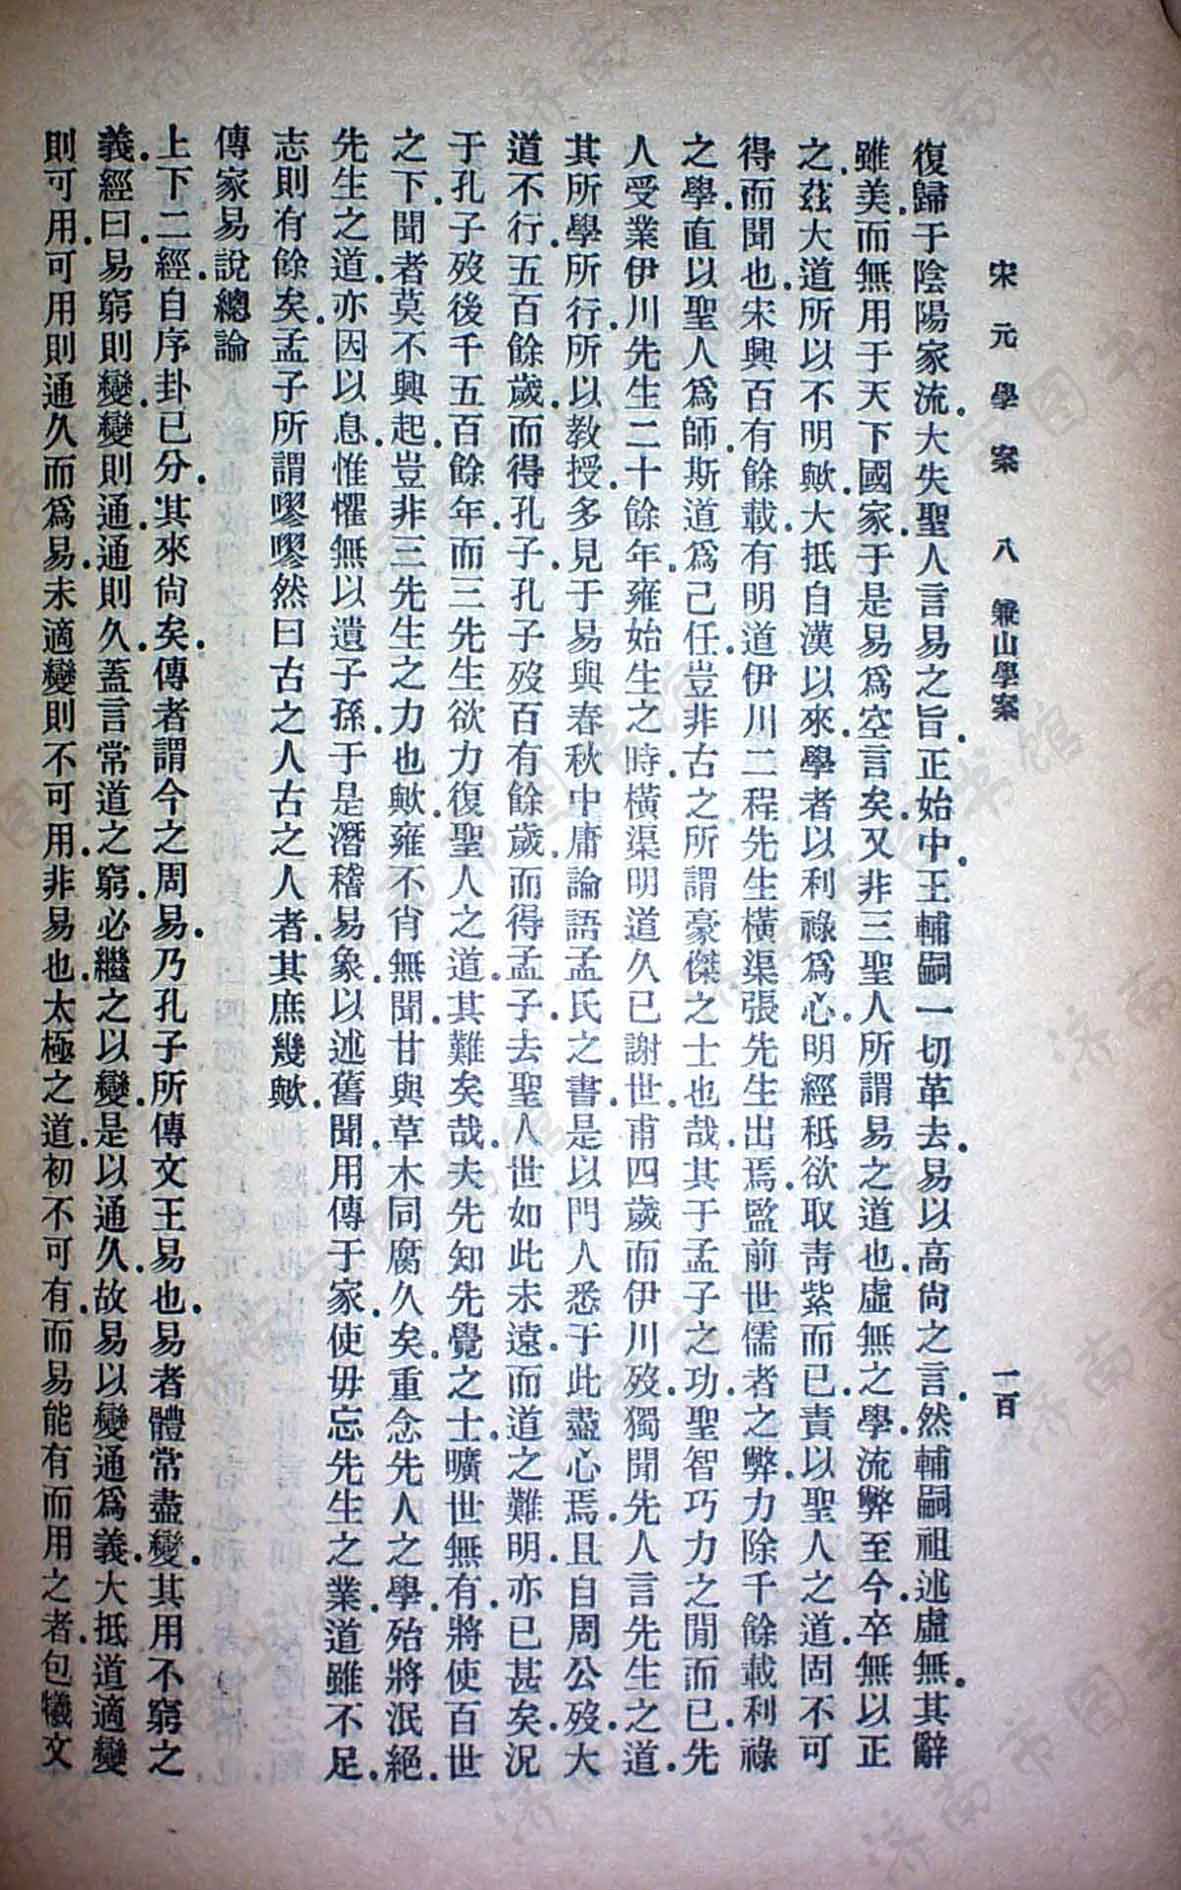 宋元學案 八 兼山學案 一百
復歸于陰陽家流大失聖人言易之旨正始中王輔嗣一切革去易以高尙之言然輔嗣祖述虛無其辭
雖美而無用于天下國家于是易爲空言矣又非三聖人所謂易之道也虛無之學流弊至今卒無以正
之茲大道所以不明歟大抵自漢以來學者以利祿爲心明經秪欲取靑紫而已責以聖人之道固不可
得而聞也宋興百有餘載有明道伊川二程先生橫渠張先生出焉監前世儒者之弊力除千餘載利祿
之學直以聖人爲師斯道爲己任豈非古之所謂豪傑之士也哉其于孟子之功聖智巧力之閒而已先
人受業伊川先生二十餘年雍始生之時橫渠明道久已謝世甫四歲而伊川歿獨聞先人言先生之道
其所學所行所以敎授多見于易與春秋中庸論語孟氏之書是以門人悉于此盡心焉且自周公歿大
道不行五百餘歲而得孔子孔子歿百有餘歲而得孟子去聖人世如此未遠而道之難明亦已甚矣況
于孔子歿後千五百餘年而三先生欲力復聖人之道其難矣哉夫先知先覺之士曠世無有將使百世
之下聞者莫不興起豈非三先生之力也歟雍不肖無聞甘與草木同腐久矣重念先人之學殆將泯絕
先生之道亦因以息惟懼無以遺子孫于是潛稽易象以述舊聞用傳于家使毋忘先生之業道雖不足
志則有餘矣孟子所謂嘐嘐然曰古之人古之人者其庶幾歟
傳家易說總論
上下二經自序卦已分其來尙矣傳者謂今之周易乃孔子所傳文王易也易者體常盡變其用不窮之
義經曰易窮則變變則通通則久蓋言常道之窮必繼之以變是以通久故易以變通爲義大抵道適變
則可用可用則通久而爲易未適變則不可用非易也太極之道初不可有而易能有而用之者包犧文